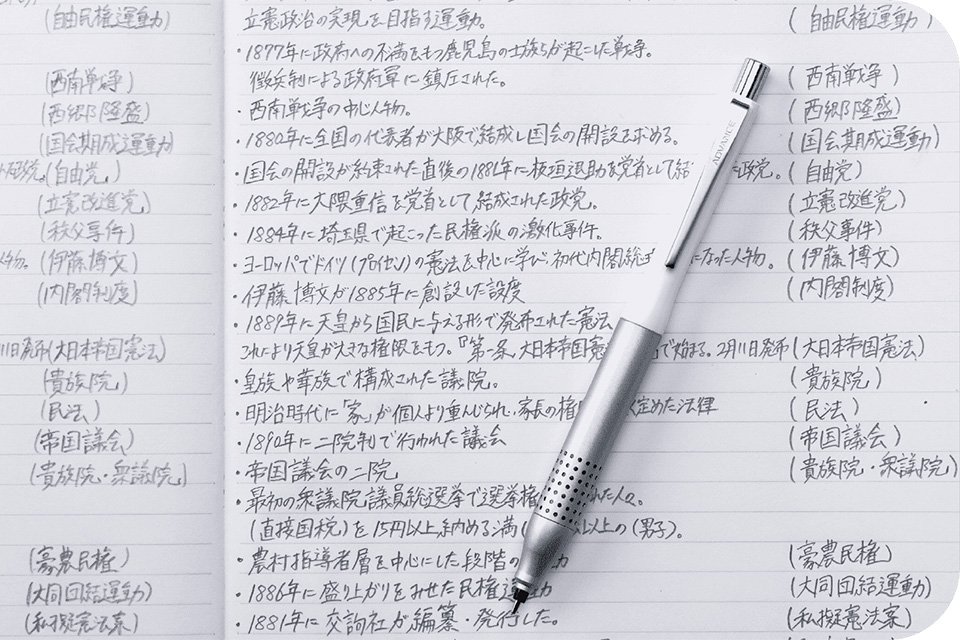 (自由民権運動)
(西南戦争)
(西郷隆盛)
(国会期成運動)
政党。(自由党)
(立憲改進党)
(秩父事件)
人物。(伊藤博文)
(内閣制度)
11日発布(大日本帝国憲法)
(貴族院)
(民法)
(帝国議会)
(貴族院・衆議院)
(豪農民権)
(大同団結運動)
(私擬憲法案)
立憲政治の実現を目指す運動。 (自由民権運動)
・1877年に政府への不満をもつ鹿児島の士族らが起こした戦争。
徴兵制による政府軍に鎮圧された。 (西南戦争)
・西南戦争の中心人物。 (西郷隆盛)
・1880年に全国の代表者が大阪で結成し国会の開設を求める。 (国会期成運動)
・国会の開設が約束された直後の1881年に板垣退助を党首として結 た政党。 (自由党)
・1882年に大隈重信を党首として結成された政党。 (立憲改進党)
・1884年に埼玉県で起こった民権派の激化事件。 (秩父事件)
・ヨーロッパでドイツ(プロイセン)の憲法を中心に学び、初代内閣総 になった人物。 (伊藤博文)
・伊藤博文が1885年に創設した設度 (内閣制度)
・1889年に天皇から国民に与える形で発布された憲法
これにより天皇が大きな権限をもつ。『第一条、大日本帝国憲 で始まる。2月11日発布 (大日本帝国憲法)
・皇族や華族で構成された議院。 (貴族院)
・明治時代に「家」が個人より重んじられ、家長の権 定めた法律 (民法)
・1890年に二院制で行われた議会 (帝国議会)
・帝国議会の二院 (貴族院・衆議院)
・最初の衆議院議員総選挙で選挙権 れた人々。
(直接国税)を15円以上納める満( 以上の(男子)。
・農村指導者層を中心にした段階の 力 (豪農民権)
・1886年に盛り上がりをみせた民権運動 (大同団結運動)
・1881年に交詢社が編纂・発行した。 (私擬憲法案)
ADVANCE